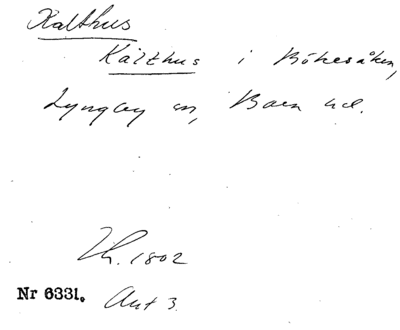 Kalthus
Kälthus i Bökesåken,
Lyngby sn, Bara hd.
Th. 1802
Nr 6331. Akt 3.